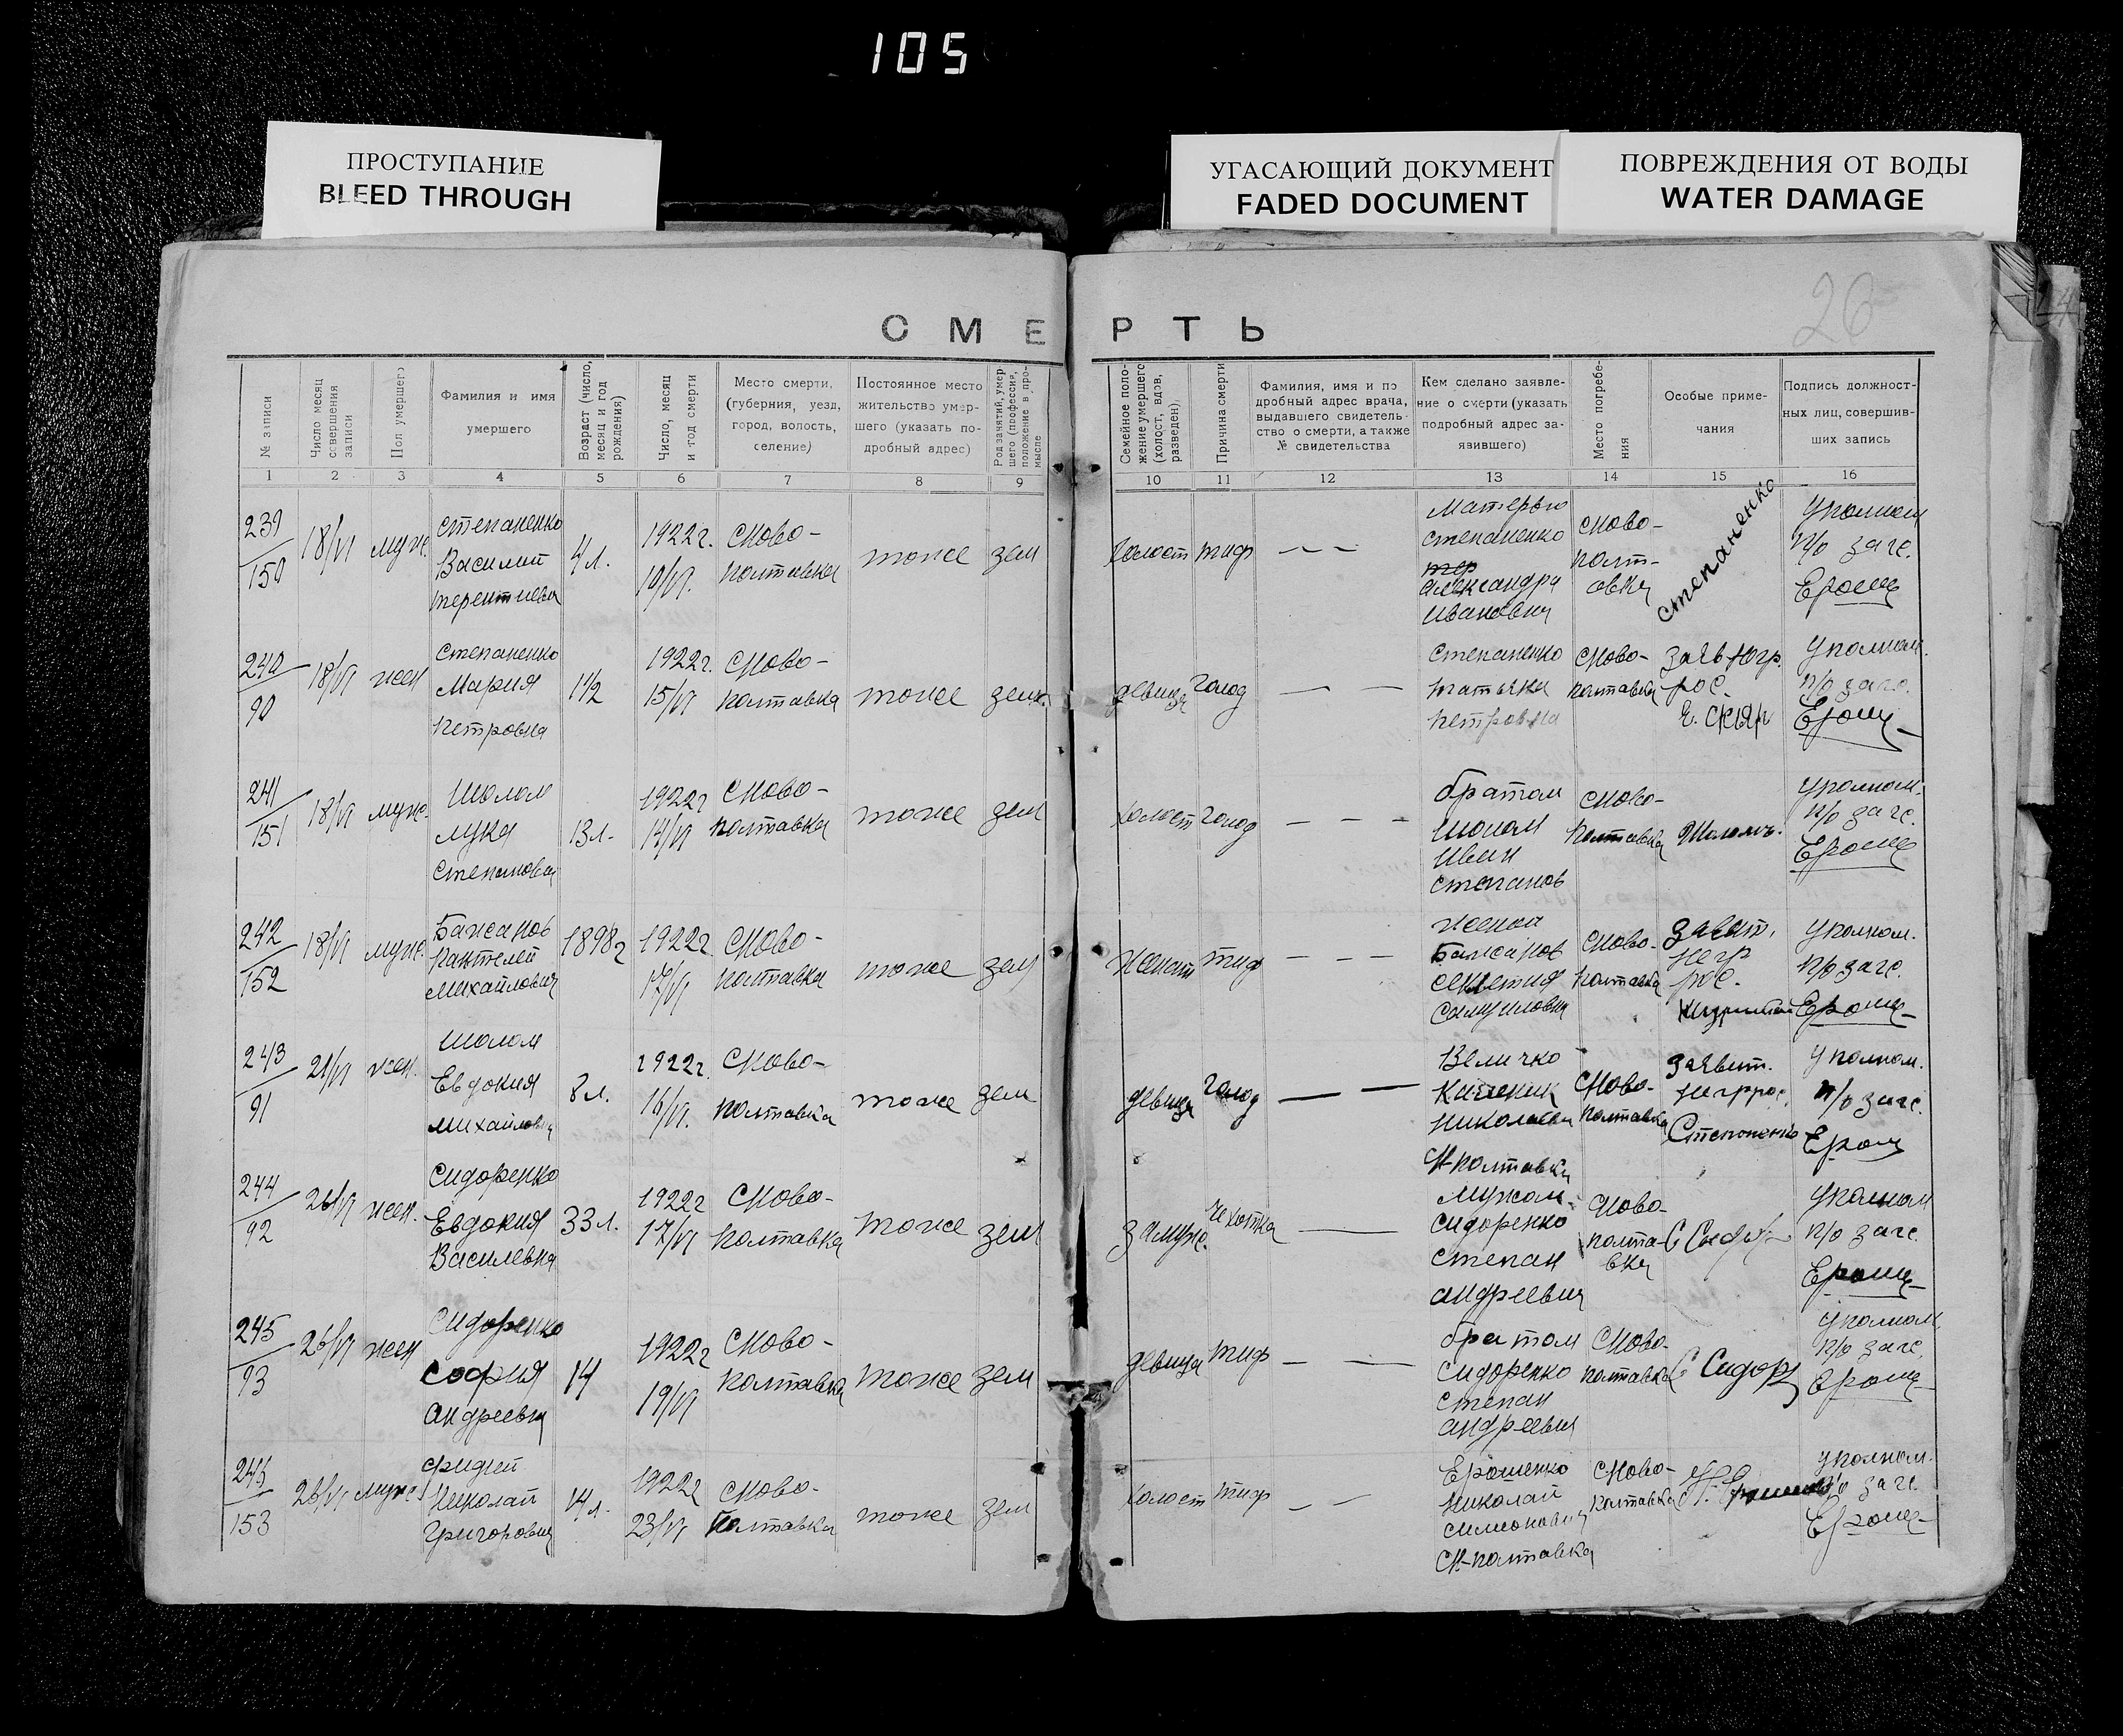 105
ПРОСТУПАНИЕ
BLEED THROUGH
УГАСАЮЩИЙ ДОКУМЕНТ
FADED DOCUMENT
ПОВРЕЖДЕНИЯ ОТ ВОДЫ
WATER DAMAGE
26
СМЕРТЬ
№ записи
Число месяц
совершения
записи
Пол умершего
Фамилия и имя
умершего
Возраст (число,
месяц и год
рождения)
Число, месяц
и год смерти
Место смерти,
(губерния, уезд,
город, волость,
селение)
Постоянное место
жительство умер-
шего (указать по-
дробный адрес)
Род занятий, умер
шего (профессия,
положение в про-
мысле
Семейное поло-
жение умершего
(холост, вдов,
разведен)
Причина смерти
Фамилия, имя и по
дробный адрес врача,
выдавшего свидетель-
ство о смерти, а также
№ свидетельства
Кем сделано заявле-
ние о смерти (указать
подробный адрес за-
явившего)
Место погребе-
ния
Особые приме-
чания
Подпись должност-
ных лиц, совершив-
ших запись
1 2 3 4 5 6 7 8 9 10 11 12 13 14 15 16
239
150
18/VI
муж.
Степаненко
Василий
Терентиев
4 л.
1922 г.
10/VI.
Ново-
полтавка
тоже
зем
холост
тиф
— —
Матерью
Степаненко
Александра
Ивановна
Ново-
полт-
авка
Степаненко
Уполном
п/о загс.
Ерош
240
90
18/VI
жен
Степаненко
Мария
Петровна
1 1/2
1922 г.
15/VI
Ново-
полтавка
тоже
зем
девица
голод
— —
Степаненко
Татьяна
Петровна
Ново-
полтавка
Уполном.
п/о загс.
Ерош
241
151
18/VI
муж.
Шолом
Лука
Степанович
13 л.
1922 г
14/VI
Ново-
полтавка
тоже
зем
холост
голод
— — —
братом
Шолом
Иван
Степанов
Ново-
полтавка
Уполном.
п/о загс.
Ерош
242
152
18/VI
муж.
Бажанов
Пантелей
Михайлович
1898 г
1922 г
17/VI
Ново-
полтавка
тоже
зем
женат
тиф
— — —
женой
Бажанов
Секлетия
Самуиловна
Ново-
полтавка
Заявит.
негр
рос.
Уполном.
п/о загс.
Ерош
243
91
21/VI
жен.
Шолом
Евдокия
Михайловна
8 л.
1922 г.
16/VI.
Ново-
полтавка
тоже
зем
девица
голод
— —
Величко
Николаевич
Н-полтавка
Ново-
полтавка
Заявит.
неграс.
Степоненко
Уполном.
п/о загс.
Ерош
244
92
26/VI
жен.
Сидоренко
Евдокия
Василевна
33 л.
1922 г
17/VI
Ново-
полтавка
тоже
зем
замуж.
чехотка
—
Мужом
Сидоренко
Степан
Андреевич
Ново-
полта-
вка
Уполном
п/о загс.
Ерош
245
93
26/VI
жен
Сидоренко
София
Андреевна
14
1922 г
19/VI
Ново-
полтавка
тоже
зем
девица
тиф
— —
братом
Сидоренко
Степан
Андреевич
Ново-
полтавка
С Сидор
Уполном.
п/о загс.
Ерош
246
153
26/VI
муж.
Николай
Григорович
14 л.
1922 г
23/VI
Ново-
полтавка
тоже
зем
холост
тиф
— —
Ерошенко
Николай
Симонович
Н-полтавка
Ново-
полтавка
Уполном.
п/о загс
Ерош